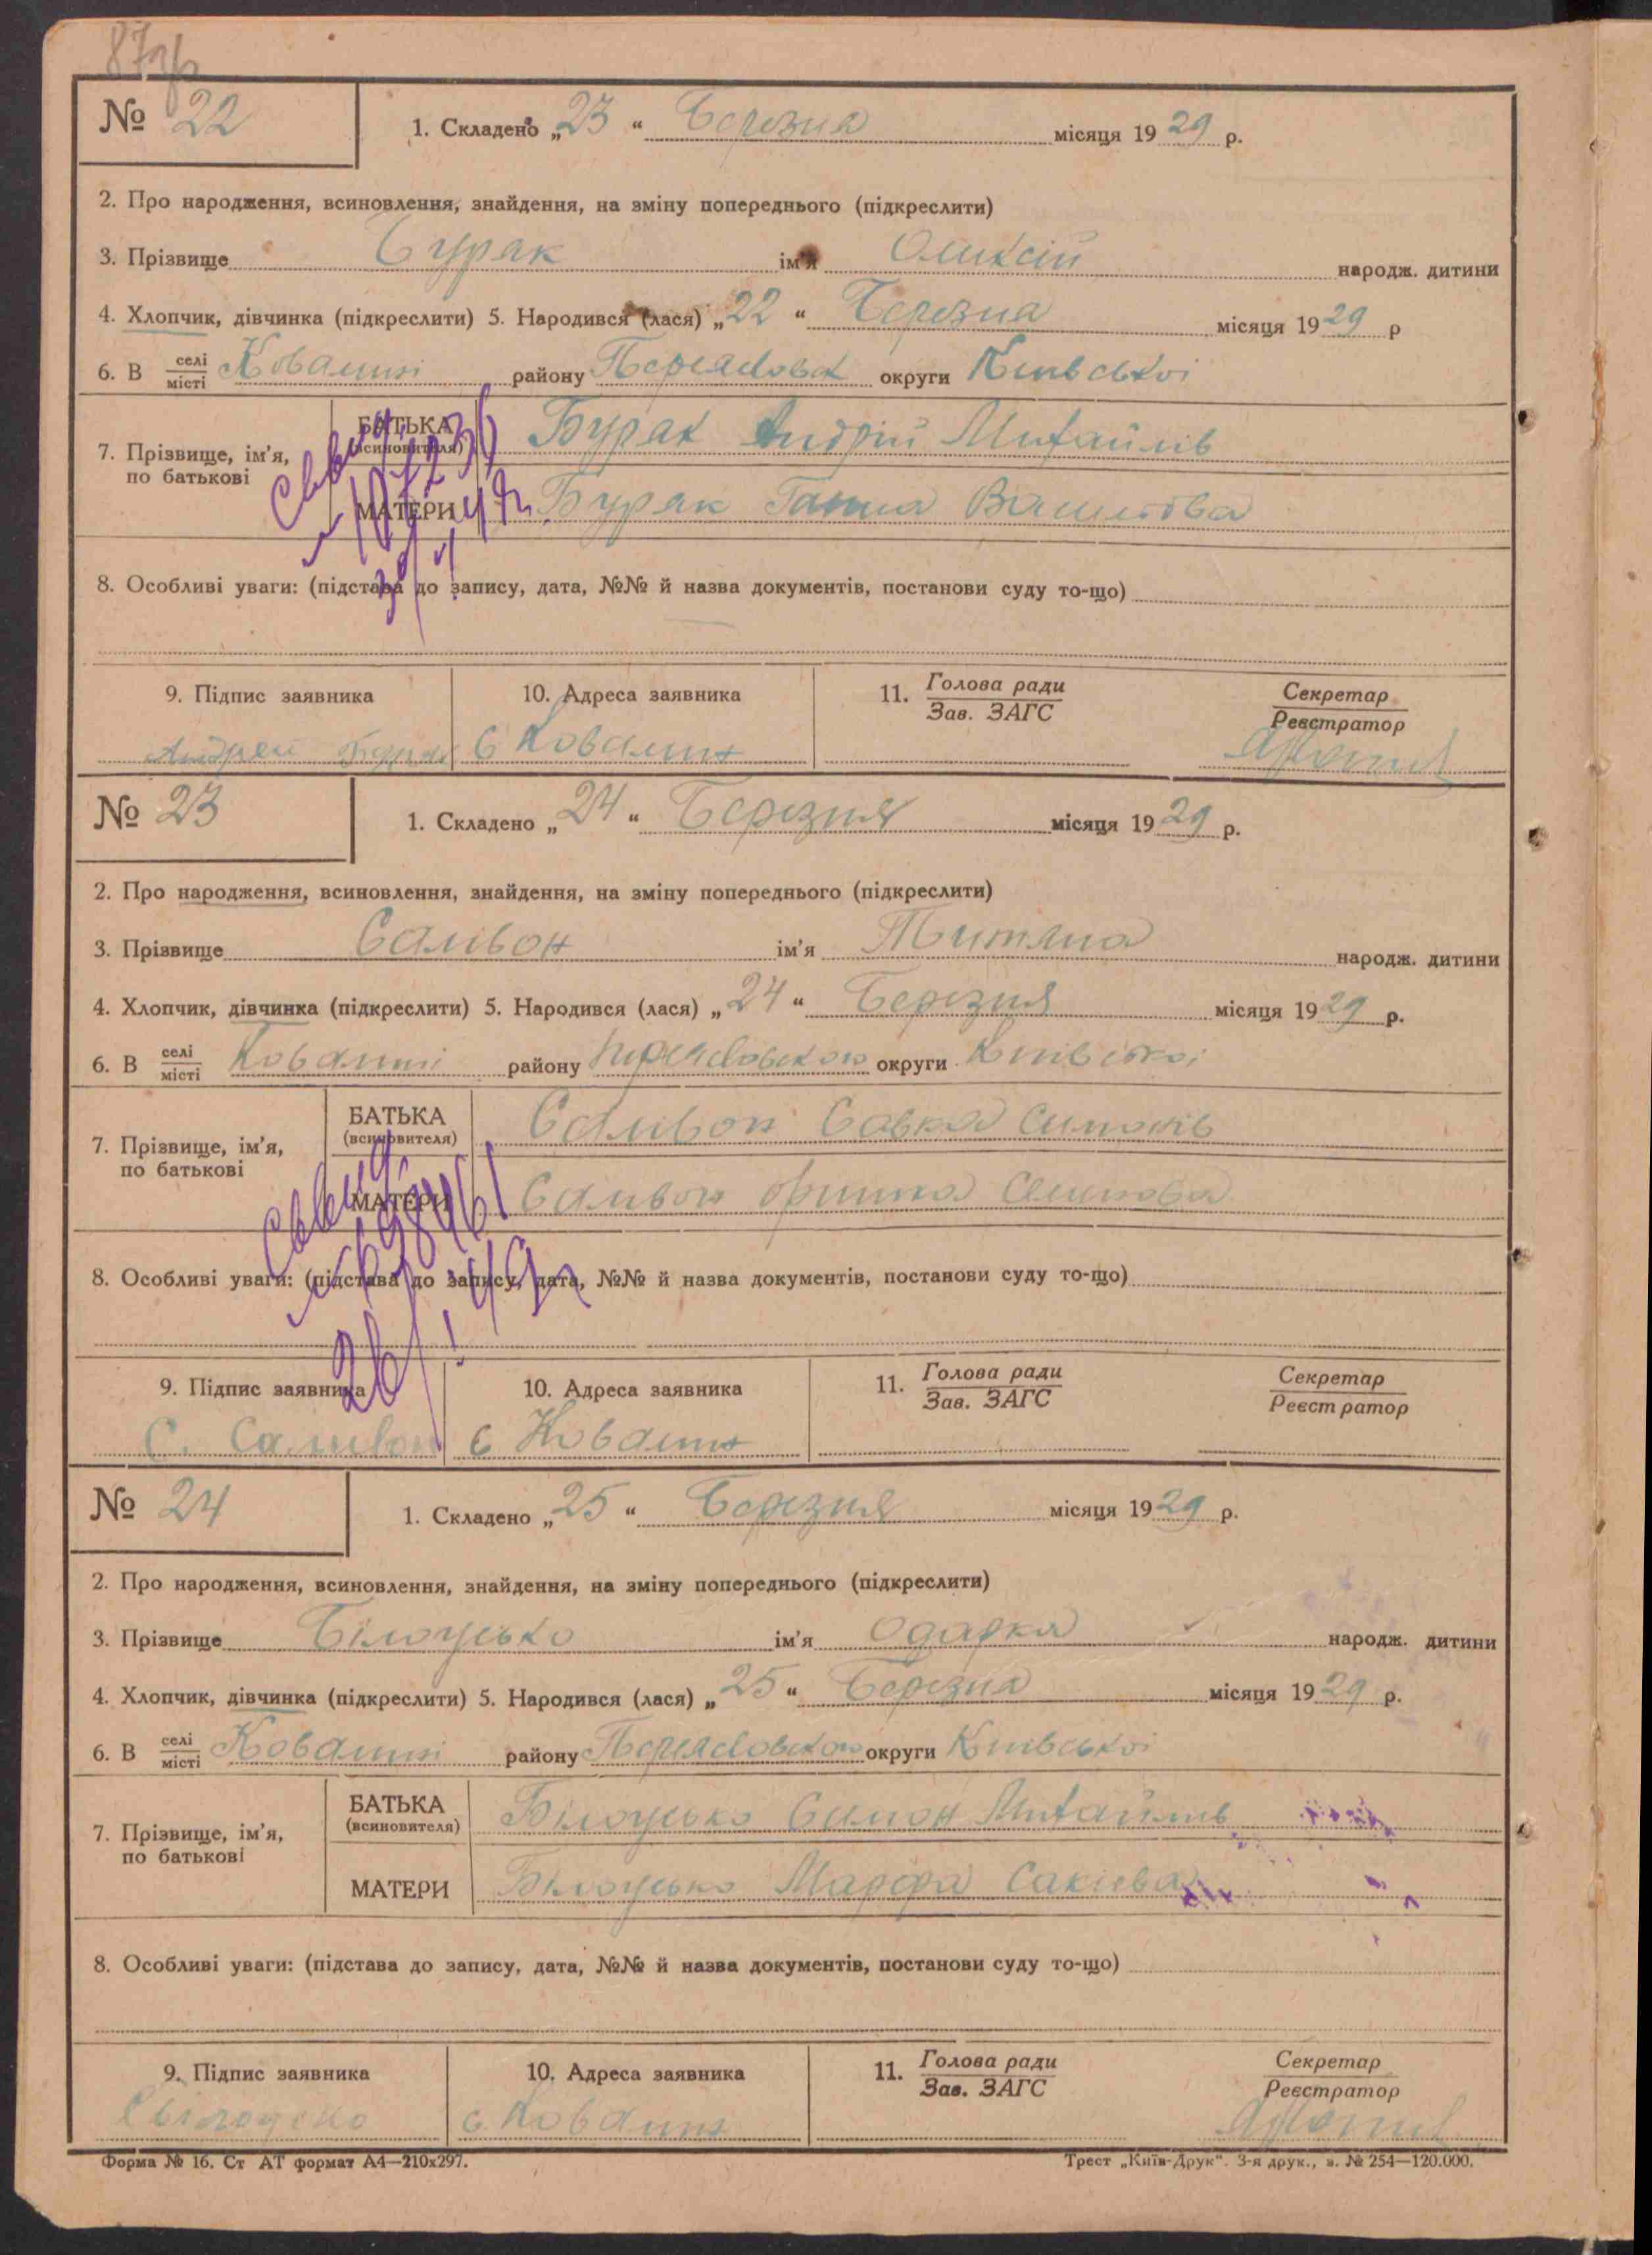 87зв
№ 22
1. Складено „23“ Березня місяця 1929 р.
2. Про народження, всиновлення, знайдення, на зміну попереднього (підкреслити)
3. Прізвище Буряк ім'я Оликсій народж. дитини
4. Хлопчик, дівчинка (підкреслити) 5. Народився (лася) „22“ Березня місяця 1929 р
6. В селі/місті Ковалині району Переясловск округи Київської
7. Прізвище, ім'я, по батькові
БАТЬКА (всиновителя) Буряк Андрій Михайлів
МАТЕРИ Буряк Ганна Василівва
8. Особливі уваги: (підстава до запису, дата, №№ й назва документів, постанови суду то-що)
9. Підпис заявника 10. Адреса заявника 11. Голова ради/Зав. ЗАГС Секретар/Реєстратор
Андрей Буряк с Ковалин
№ 23
1. Складено „24“ Березня місяця 1929 р.
2. Про народження, всиновлення, знайдення, на зміну попереднього (підкреслити)
3. Прізвище Салівон ім'я Титяна народж. дитини
4. Хлопчик, дівчинка (підкреслити) 5. Народився (лася) „24“ Березня місяця 1929 р.
6. В селі/місті Ковалині району Переясловского округи Київської
7. Прізвище, ім'я, по батькові
БАТЬКА (всиновителя) Салівон Савка Симонів
МАТЕРИ Саливон Оришка
8. Особливі уваги: (підстава до запису, дата, №№ й назва документів, постанови суду то-що)
9. Підпис заявника 10. Адреса заявника 11. Голова ради/Зав. ЗАГС Секретар/Реєстратор
С. Саливон с Ковалин
№ 24
1. Складено „25“ Березня місяця 1929 р.
2. Про народження, всиновлення, знайдення, на зміну попереднього (підкреслити)
3. Прізвище Білоусько ім'я Одарка народж. дитини
4. Хлопчик, дівчинка (підкреслити) 5. Народився (лася) „25“ Березня місяця 1929 р.
6. В селі/місті Ковалині району Переясловского округи Київської
7. Прізвище, ім'я, по батькові
БАТЬКА (всиновителя) Білоусько Симон Михайлив
МАТЕРИ Білоусько Марфа Сакієва
8. Особливі уваги: (підстава до запису, дата, №№ й назва документів, постанови суду то-що)
9. Підпис заявника 10. Адреса заявника 11. Голова ради/Зав. ЗАГС Секретар/Реєстратор
с. Ковалин
Форма № 16. Ст АТ формат А4—210x297. Трест „Київ-Друк“. 3-я друк., з. № 254—120.000.